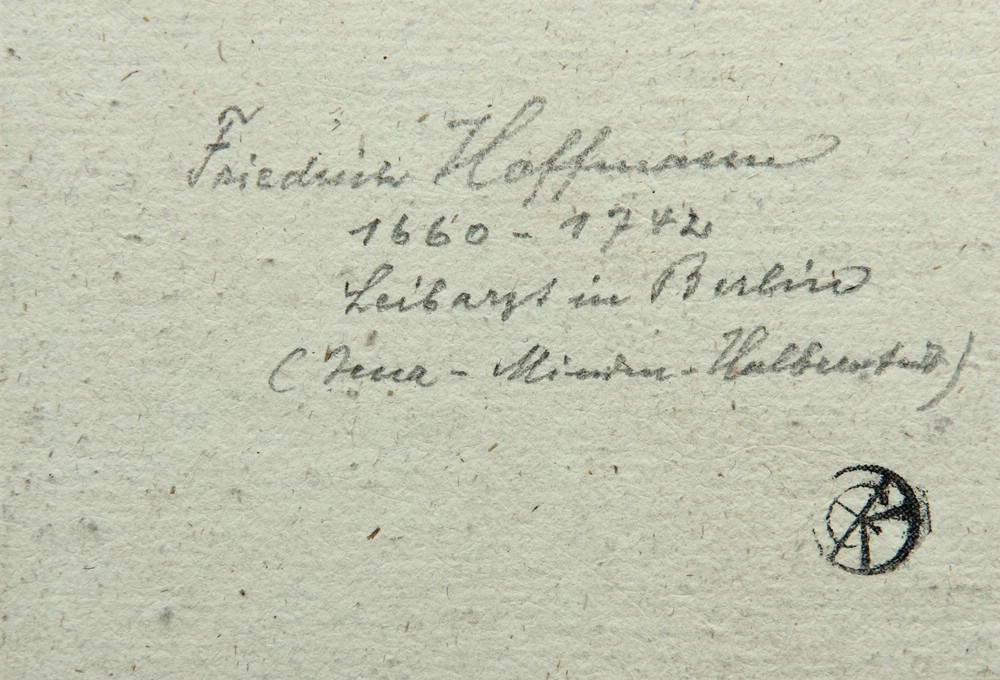 Friedrich Hoffmann
1660 - 1742
Leibarzt in Berlin
(Jena - Minden - Halberstadt)